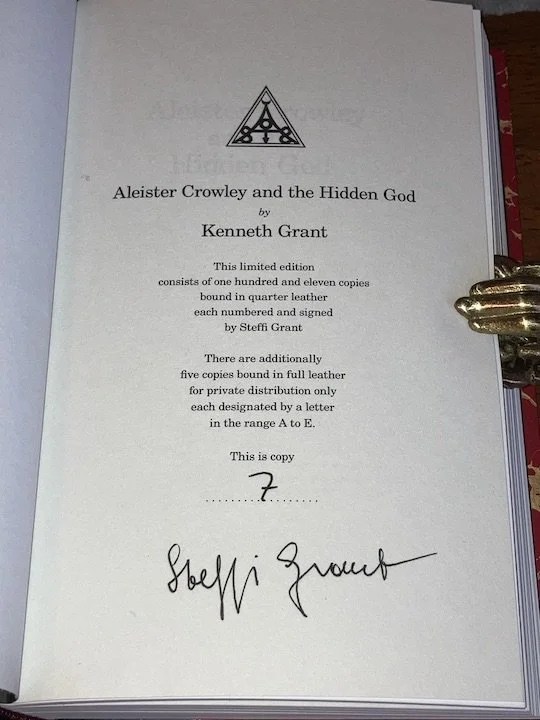 Aleister Crowley and the Hidden God
by
Kenneth Grant
This limited edition
consists of one hundred and eleven copies
bound in quarter leather
each numbered and signed
by Steffi Grant
There are additionally
five copies bound in full leather
for private distribution only
each designated by a letter
in the range A to E.
This is copy
7
Steffi Grant